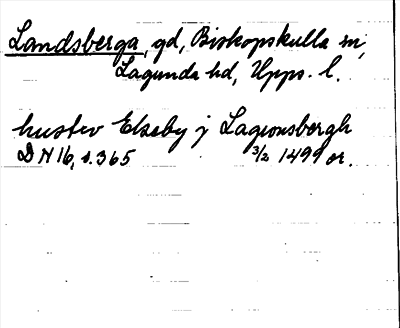 Landsberga, gd, Biskopskulla sn,
Lagunda hd, Upps. l.
hustrv Elzeby j Lagmonsbergh
D N 16, s. 365 3/2 1499 or.